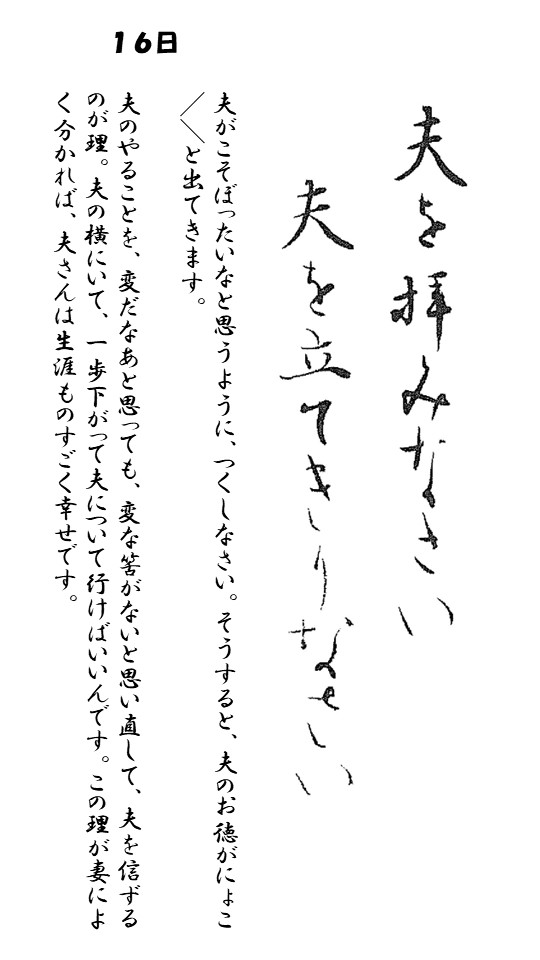 16日
夫を拝みなさい
夫を立てきりなさい
夫がこそばったいなと思うように、つくしなさい。そうすると、夫のお徳がにょこ
〱と出てきます。
夫のやることを、変だなあと思っても、変な筈がないと思い直して、夫を信ずる
のが理。夫の横にいて、一歩下がって夫について行けばいいんです。この理が妻によ
く分かれば、夫さんは生涯ものすごく幸せです。